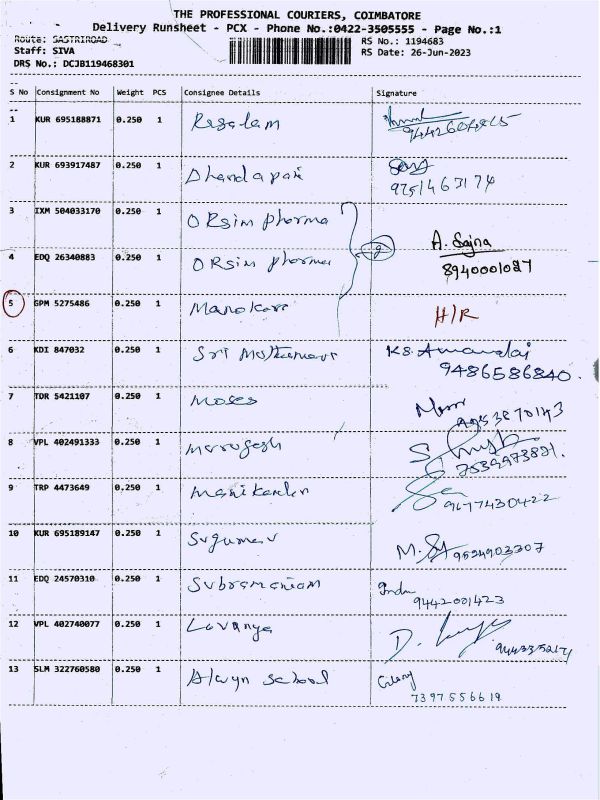 THE PROFESSIONAL COURIERS, COIMBATORE
Delivery Runsheet - PCX - Phone No.:0422-3505555 - Page No.:1
Route: SASTRIROAD
Staff: SIVA
DRS No.: DCJB119468301
RS No.: 1194683
RS Date: 26-Jun-2023
S No Consignment No Weight PCS Consignee Details Signature
1 KUR 695188871 0.250 1 Rasalam
2 KUR 693917487 0.250 1 Dhandapani 9751463174
3 IXM 504033170 0.250 1 ORsim pharma
A. Sajna
4 EDQ 26340883 0.250 1 ORsim pharma 8940001087
5 GPM 5275486 0.250 1 Manokar H/R
6 KDI 847032 0.250 1 Sri K8. Amandai
9486586840.
7 TDR 5421107 0.250 1 Moses
8 VPL 402491333 0.250 1 Murugesh
9 TRP 4473649 0.250 1 Manikandan 9677430422
10 KUR 695189147 0.250 1 Sugumar 9524903307
11 EDQ 24570310 0.250 1 Subramaniam Indu
9442001423
12 VPL 402740077 0.250 1 Lavanya
13 SLM 322760580 0.250 1 Alwyn school
7397556619